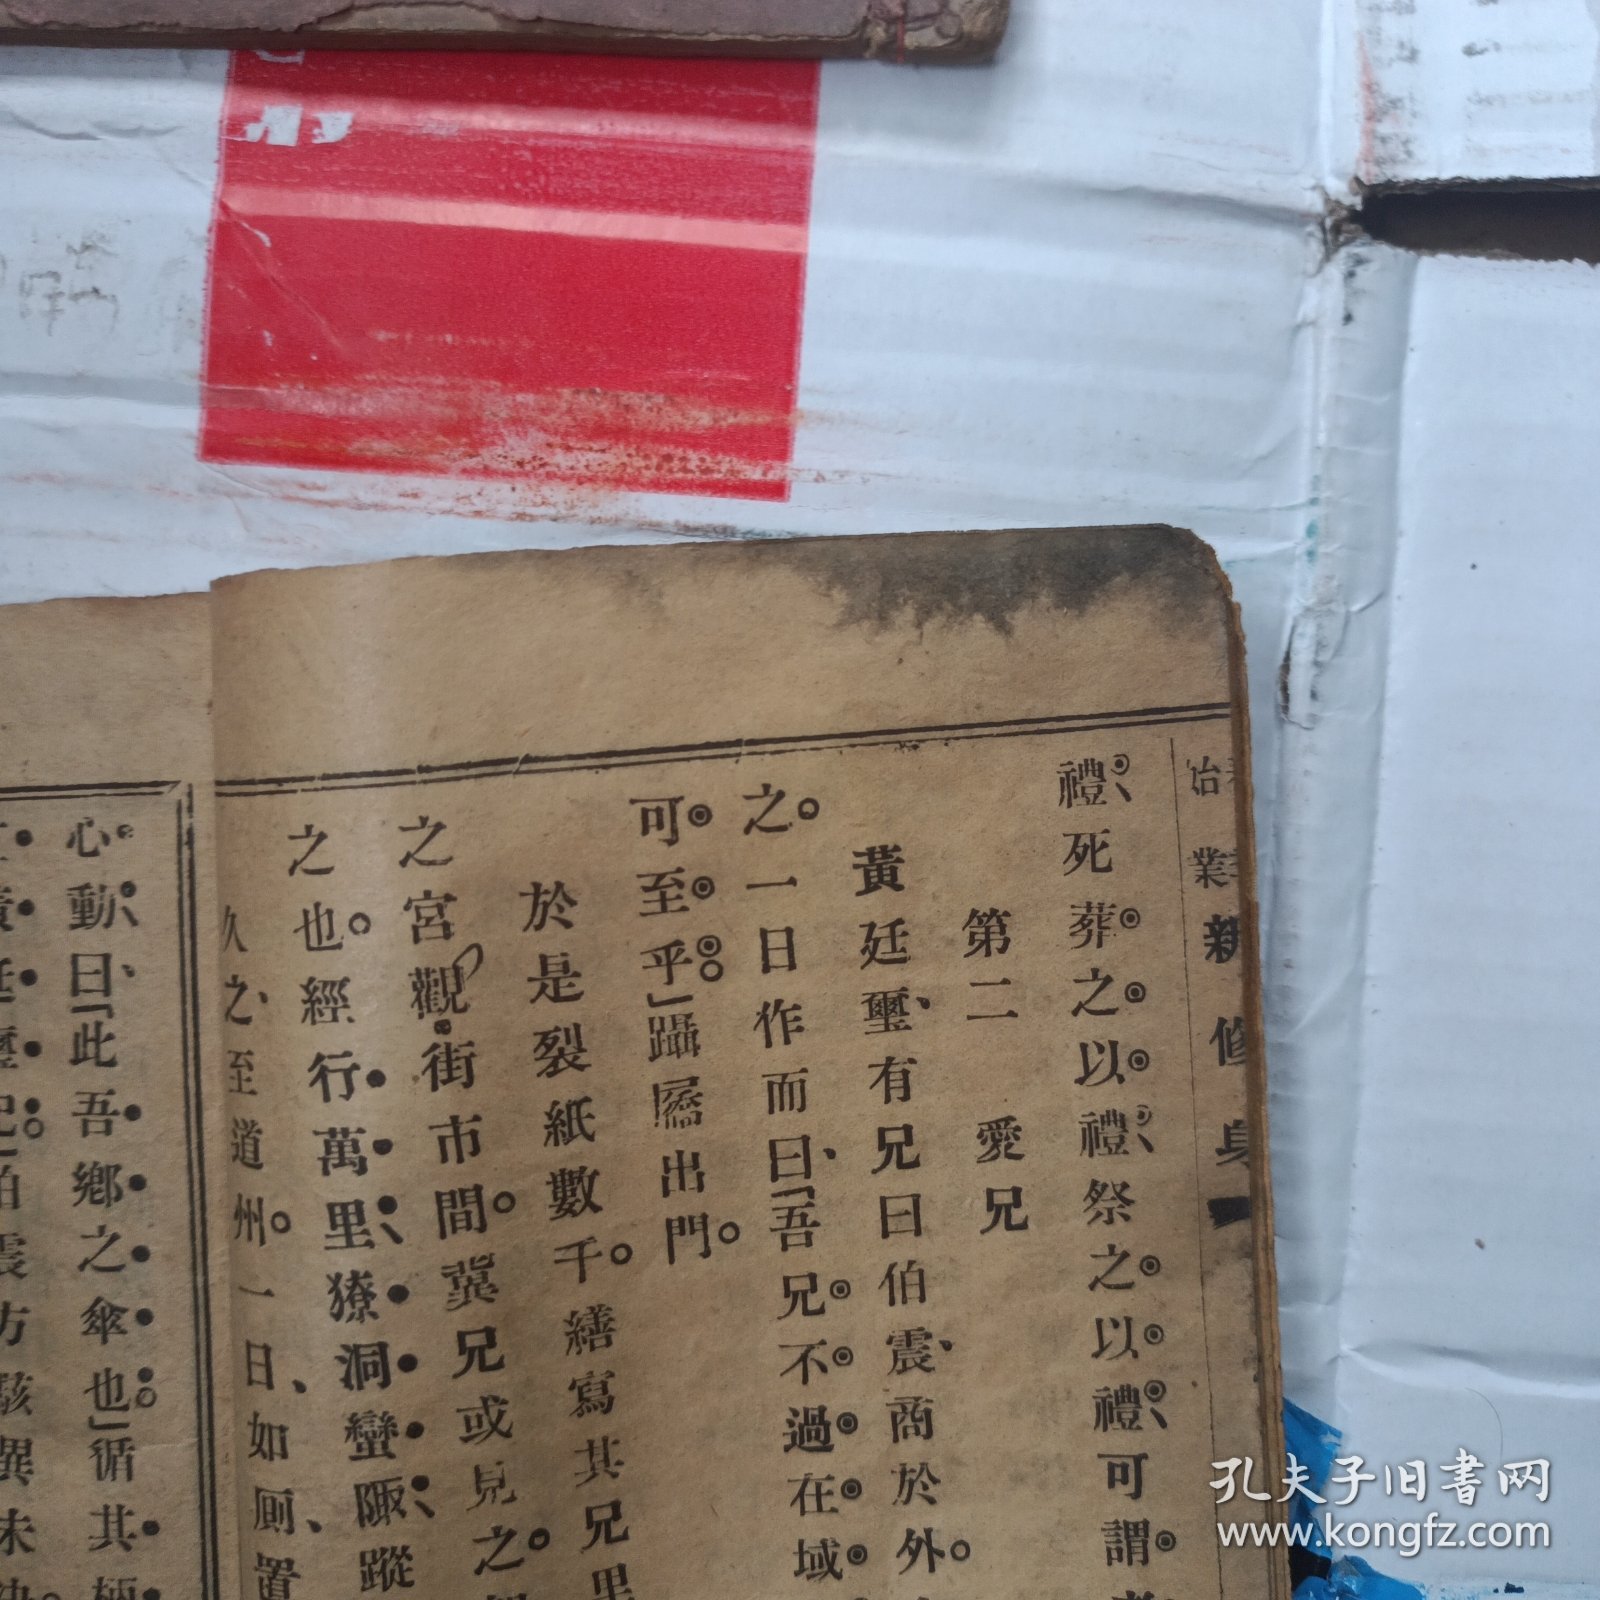 業新修身
禮死葬之以禮祭之以禮可謂
第二 愛兄
黃廷璽有兄曰伯震商於外
之一日作而曰「吾兄不過在域
可至乎」躡屩出門
於是裂紙數千繕寫其兄里
之宮觀街市間冀兄或見之
之也經行萬里獠洞蠻陬蹤
久之至道州一日如厠置
心動曰「此吾鄉之傘也」循其柄
廷璽也伯震方駭異未
孔夫子旧書网
www.kongfz.com